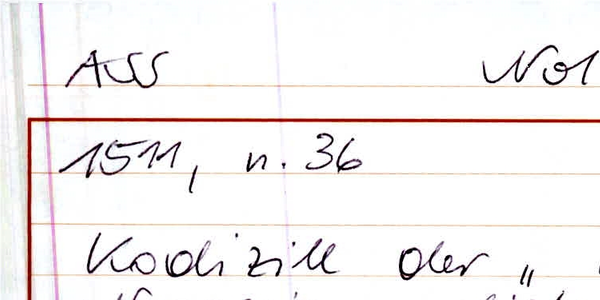 ASS Not
1511, n. 36
Kodizill der "